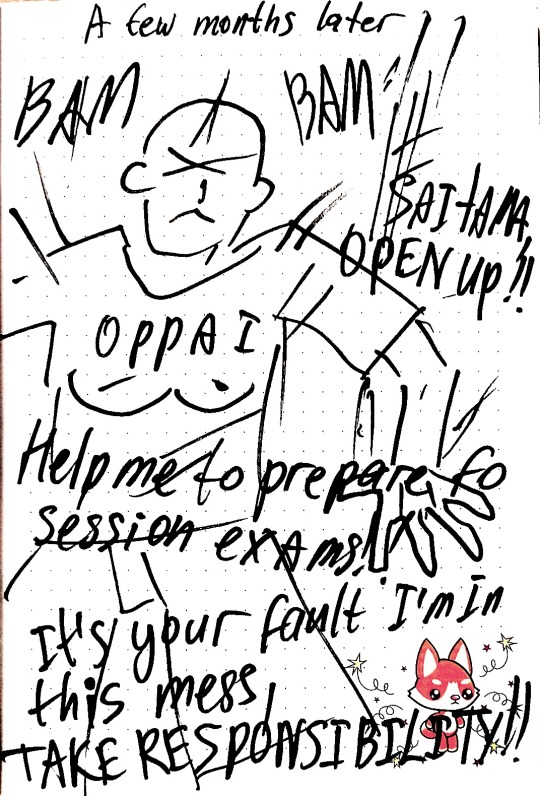 A few months later
BAM BAM
SAITAMA
OPEN up!!
OPPAI
Help me to prepare fo
session exams!
It's your fault I'm in
this mess,
TAKE RESPONSIBILITY!!